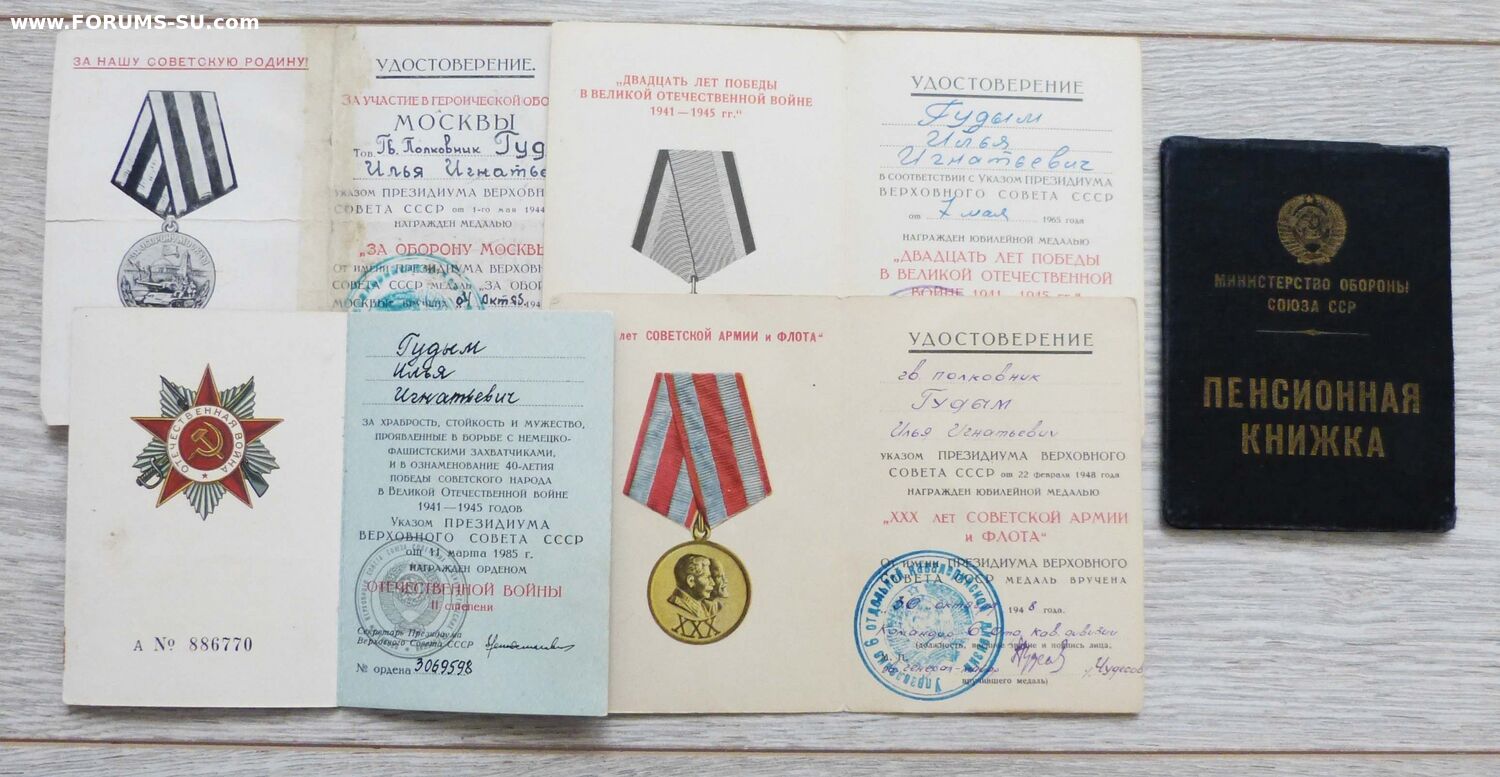 www.FORUMS-SU.com
ЗА НАШУ СОВЕТСКУЮ РОДИНУ!
УДОСТОВЕРЕНИЕ.
ЗА УЧАСТИЕ В ГЕРОИЧЕСКОЙ ОБО
МОСКВЫ
Тов. Гв. Полковник Гуд
Илья Игнатье
УКАЗОМ ПРЕЗИДИУМА ВЕРХОВН
СОВЕТА СССР от 1-го мая 1944
НАГРАЖДЕН МЕДАЛЬЮ
„ЗА ОБОРОНУ МОСКВЫ
ОТ ИМЕНИ ПРЕЗИДИУМА ВЕРХОВН
СОВЕТА СССР МЕДАЛЬ „ЗА ОБОР
МОСКВЫ" ВРУЧЕНА
„ДВАДЦАТЬ ЛЕТ ПОБЕДЫ
В ВЕЛИКОЙ ОТЕЧЕСТВЕННОЙ ВОЙНЕ
1941—1945 гг."
УДОСТОВЕРЕНИЕ
Гудым
Илья
Игнатьевич
В СООТВЕТСТВИИ С УКАЗОМ ПРЕЗИДИУМА
ВЕРХОВНОГО СОВЕТА СССР
от 7 мая 1965 года
НАГРАЖДЕН ЮБИЛЕЙНОЙ МЕДАЛЬЮ
„ДВАДЦАТЬ ЛЕТ ПОБЕДЫ
В ВЕЛИКОЙ ОТЕЧЕСТВЕННОЙ
ВОЙНЕ 1941—1945 гг."
ОТЕЧЕСТВЕННАЯ ВОЙНА
А № 886770
Гудым
Илья
Игнатьевич
ЗА ХРАБРОСТЬ, СТОЙКОСТЬ И МУЖЕСТВО,
ПРОЯВЛЕННЫЕ В БОРЬБЕ С НЕМЕЦКО-
ФАШИСТСКИМИ ЗАХВАТЧИКАМИ,
И В ОЗНАМЕНОВАНИЕ 40-ЛЕТИЯ
ПОБЕДЫ СОВЕТСКОГО НАРОДА
В ВЕЛИКОЙ ОТЕЧЕСТВЕННОЙ ВОЙНЕ
1941—1945 ГОДОВ
УКАЗОМ ПРЕЗИДИУМА
ВЕРХОВНОГО СОВЕТА СССР
от 11 марта 1985 г.
НАГРАЖДЕН ОРДЕНОМ
ОТЕЧЕСТВЕННОЙ ВОЙНЫ
II степени
Секретарь Президиума
Верховного Совета СССР
№ ордена 3069598
лет СОВЕТСКОЙ АРМИИ и ФЛОТА"
XXX
УДОСТОВЕРЕНИЕ
гв. полковник
Гудым
Илья Игнатьевич
УКАЗОМ ПРЕЗИДИУМА ВЕРХОВНОГО
СОВЕТА СССР от 22 февраля 1948 года
НАГРАЖДЕН ЮБИЛЕЙНОЙ МЕДАЛЬЮ
„XXX лет СОВЕТСКОЙ АРМИИ
и ФЛОТА"
От имени ПРЕЗИДИУМА ВЕРХОВНОГО
СОВЕТА СССР МЕДАЛЬ ВРУЧЕНА
„30" октября 1948 года.
Командир 6 Отд. кав. дивизии
(должность, звание и подпись лица,
генерал-майор Чудесов
вручившего медаль)
Управление 6 отдельной кавалерийской дивизии
МИНИСТЕРСТВО ОБОРОНЫ
СОЮЗА ССР
ПЕНСИОННАЯ
КНИЖКА